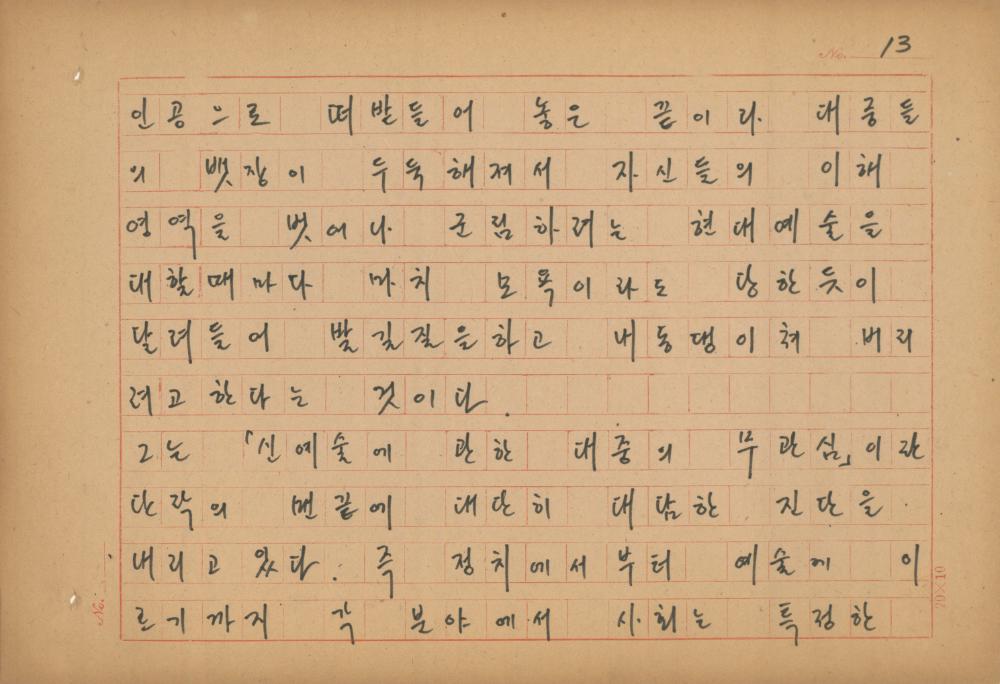 No. 13
인공으로 떠받들어 놓은 끝이라. 대중들
의 뱃장이 두둑해져서 자신들의 이해
영역을 벗어나 군림하려는 현대예술을
대할때마다 마치 모욕이라도 당한듯이
달려들어 발길질을하고 내동댕이쳐 버리
려고한다는 것이다.
그는 「신예술에 관한 대중의 무관심」이란
단락의 맨끝에 대단히 대담한 진단을
내리고 있다. 즉 정치에서부터 예술에 이
르기까지 각 분야에서 사회는 특정한
No.
20×10